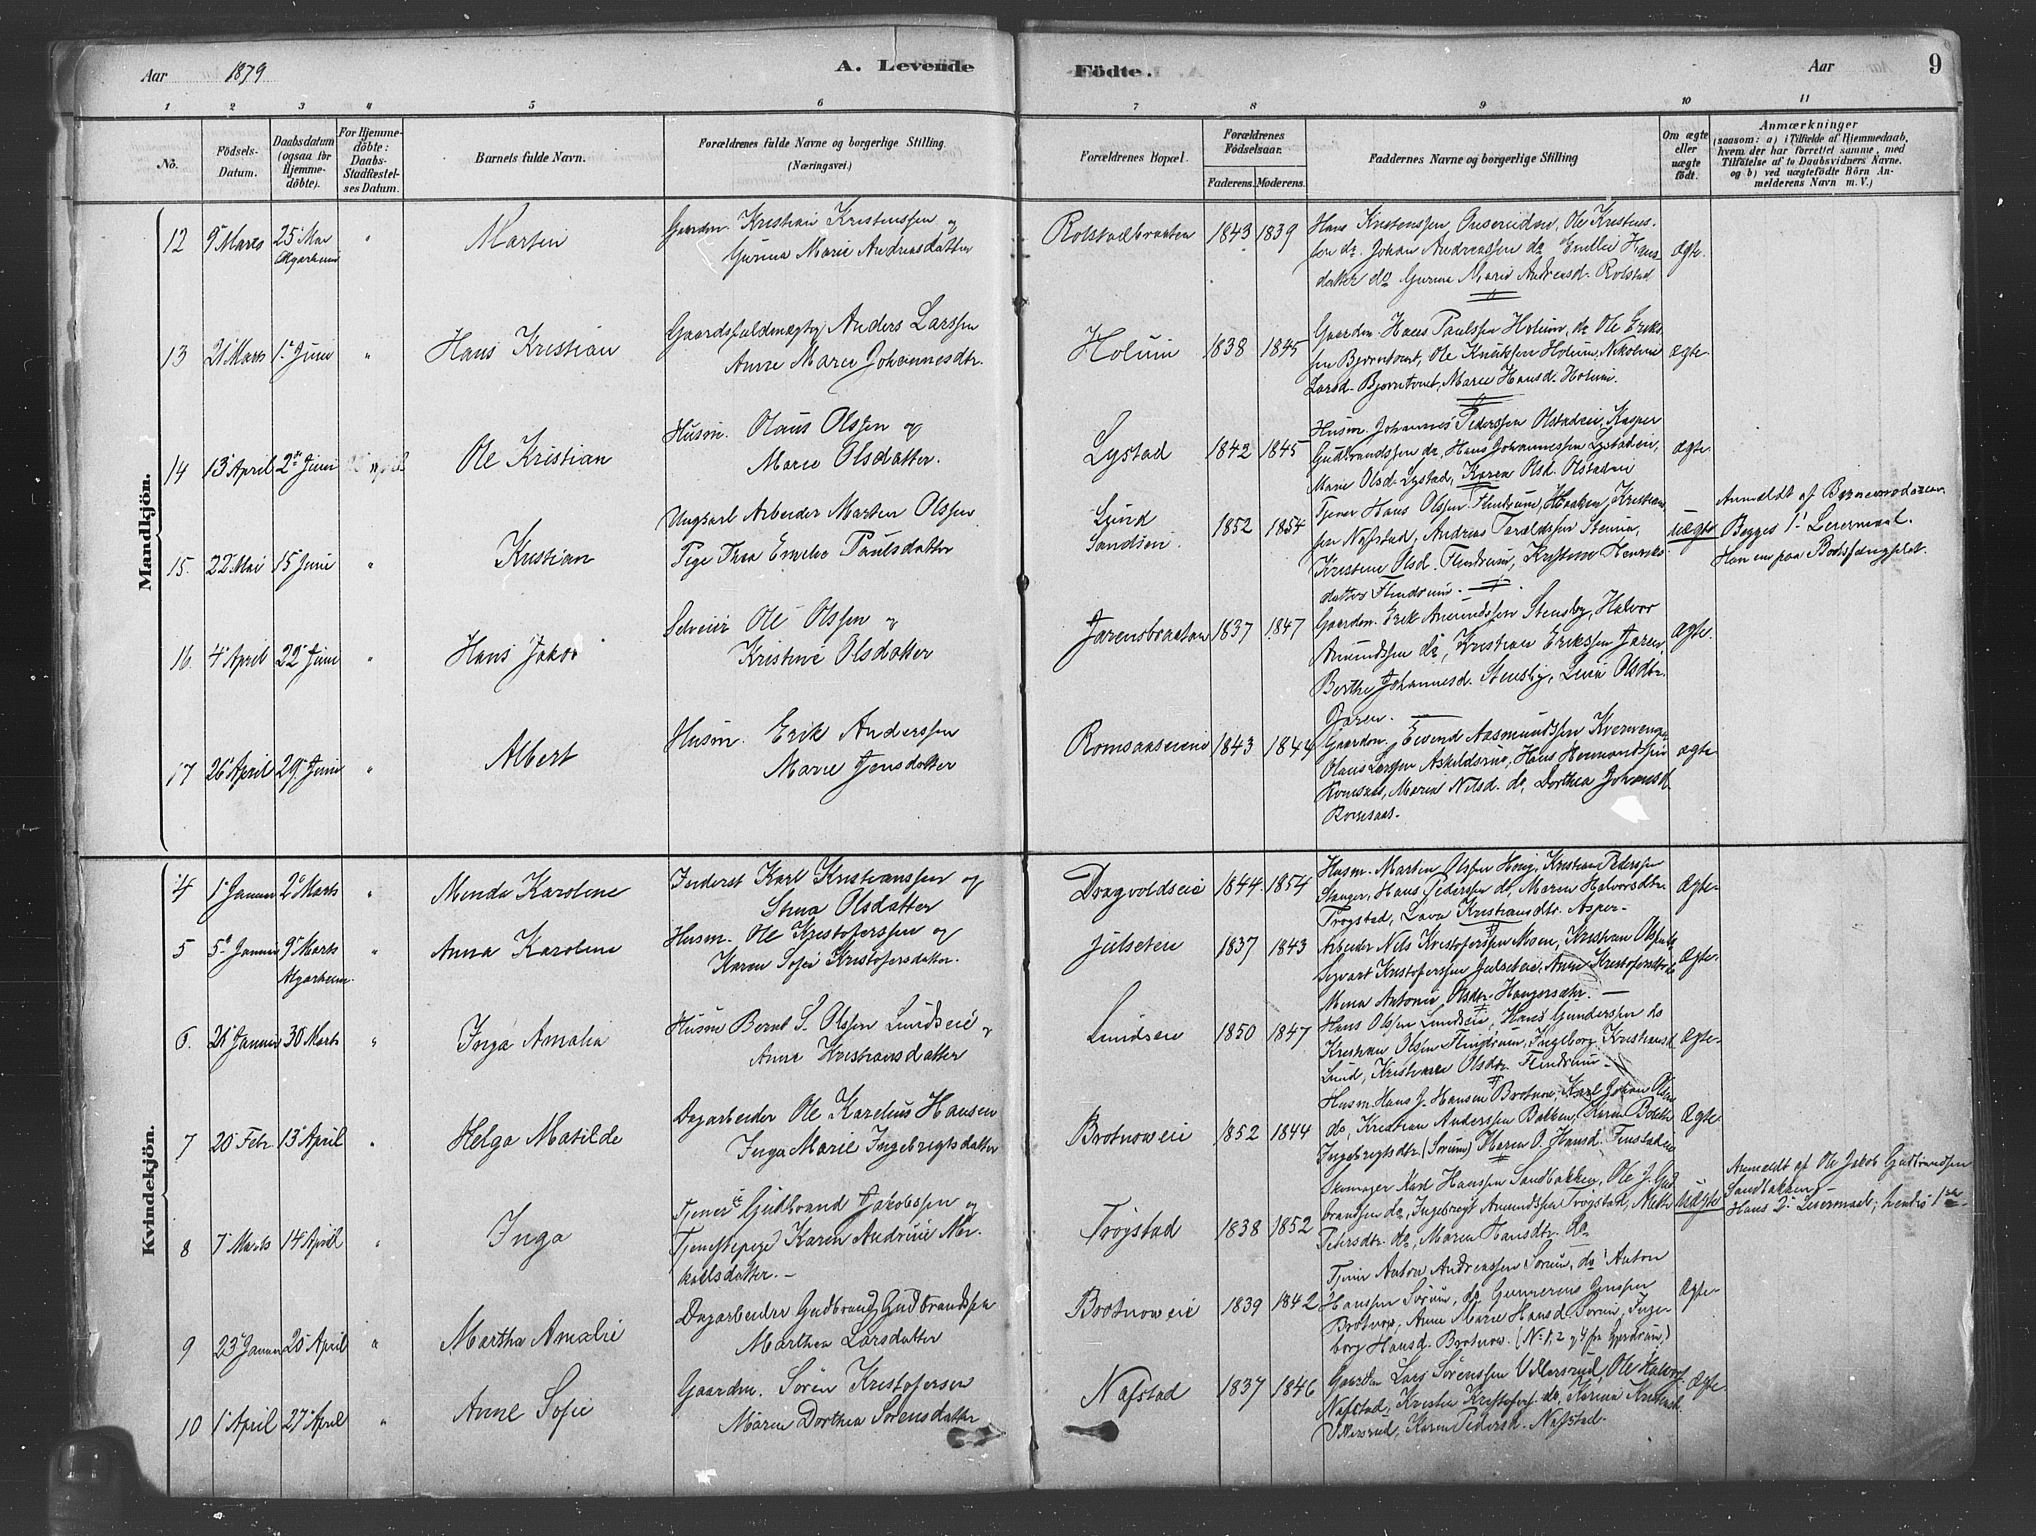 Aar 1879
A. Levende
Födte.
Aar
9
1 2 3 4 5 6 7 8 9 10 11
No.
Födsels-
Datum.
Daabsdatum
(ogsaa for
Hjemme-
döbte).
For Hjemme-
döbte:
Daabs-
Stadfæstel-
ses Datum.
Barnets fulde Navn.
Forældrenes fulde Navne og borgerlige Stilling
(Næringsvei.)
Forældrenes Bopæl.
Forældrenes
Födselsaar.
Faderens. Moderens.
Faddernes Navne og borgerlige Stilling
Om ægte
eller
uægte
födt.
Anmærkninger
(saasom: a) i Tilfælde af Hjemmedaab,
hvem der har forrettet samme, med
Tilföielse af to Daabsvidners Navne,
og b) ved uægtefödte Börn An-
melderens Navn m. V.)
Mandkjön.
12 9 Marts 25 Mai " Martin
Gaardm. Kristian Kristenssen og
Gunna Marie Andreasdatter
Rolstadbraaten 1843 1839
Hans Kristenssen Ole Kristens-
sen do Johan Andreassen do Emilie Hans
datter do Gunna Marie Andreasd. Rolstad
ægte.
13 21 Marts 1 Juni " Hans Kristian
Anders Larssen
Anne Marie Johannesdtr.
Holum 1838 1845
Gaardm. Hans Paulssen Holum, do Ole Eriks-
sen Bjørntvet, Ole Holum, Nikoline
Larsd. Bjørntvet, Marie Hansd. Holum.
ægte.
14 13 April 2 Juni Ole Kristian
Husm. Olaus Olssen og
Marie Olsdatter.
Lystad 1842 1845
Husm. Johannes Pederssen Olstadeie, Kasper
Gudbrandssen do, Hans Johannessen Lystadeie,
Marie Olsd. Lystad, Karen Olsd. Olstadeie
ægte.
15. 22 Mai 15 Juni " Kristian
Ungkarl Arbeider Martin Olssen
Pige Thea Emelie Paulsdatter
Lund
Sandseie.
1852 1854
Tjener Hans Olssen Flindrum, Haaken Kristian
sen Nafstad, Andreas Taraldssen Stenna,
Kristine Olsd. Flindrum, Henriks
datter Flindrum.
uægte
Anmældt af Barnemoderen.
Begges 1' Leiermaal.
Han er paa Bodsfængslet.
16. 4 April 22 Juni " Hans Jakob
Selveier Ole Olssen og
Kristine Olsdatter
Jarensbraaten 1837 1847
Gaardm. Erik Amundssen Stensby, Halvor
Amundssen do, Kristian Erikssen Jaren,
Berthe Johannesd. Stensby, Lina Olsdtr.
Jaren.
ægte.
17 26 April 29 Juni " Albert
Husm. Erik Anderssen
Marie Jensdatter
Romsaaseie 1843 1844
Gaardm. Eivend Aasmundssen Kvernvenge
Olaus Larssen Askildsrud, Hans Hermandssen
Romsaas, Maria Nilsd. do, Dorthea Johansd.
Romsaas.
ægte
Kvindekjön.
4 1 Januar 2 Marts " Menda Karoline
Inderst Karl Kristianssen og
Stina Olsdatter
Dragvoldseie 1844 1854
Husm. Martin Olssen Kristian Pederssen
Stanger, Hans Pederssen do, Maren Halvorsdtr.
Trøgstad, Lava Kristiansdtr. Asper-
ægte-
5 5 Januar 9 Marts " Anna Karoline
Algarheim
Husm. Ole Kristoferssen og
Karen Sofie Kristofersdatter.
Julseteie 1837 1843
Arbeider Nils Kristoferssen Moen, Kristian
Sigvart Kristoferssen Julseteie, Anne Kristofersdtr.
Mina Antonie Olsdtr.
ægte-
6. 26 Januar 30 Marts " Inga Amalia
Husm Bernt S. Olssen Lundseie og
Anne Kristiansdatter
Lundseie 1850 1847
Hans Olssen Lundseie, Hans Gunderssen do
Kristian Olsen Flindrum, Ingeborg Kristiansd.
Lund, Kristiane Olsdtr. Flindrum
ægte-
7 20 Febr 13 April " Helga Matilde
Dagarbeider Ole Karelius Hansen
Inga Marie Ingebrigtsdatter
Brotnoweie 1852 1844
Husm. Hans J. Hansen Brotnow, Karl Johan Olsen
do, Kristian Anderssen Bakken, Karen Bolette
Ingebrigtsdtr. (Sørum) Maren O. Hansd. Finstadeie
Ægte
8 7 Marts 14 April " Inga
Tjener Gudbrand Jakobssen og
Tjenestepige Karen Andrine Mi-
kalsdatter.
Trøgstad 1838 1852
Skomager Karl Hanssen Sandbakken, Ole J. Gud
brandsen do, Ingebregt Amundssen Trøgstad, Mette
Pedersdtr. do, Maren Hansdtr. do
uægte
Anmeldt af Ole Jakob Gudbrandsen
Sandbakken.
Hans 2' Leiermaal, hendes 1ste
9 23 Januar 20 April " Martha Amalie
Dagarbeider Gudbrand Gudbrandssen
Marthea Larsdatter
Brotnoweie 1839 1842
Tjener Anton Andreassen Sørum, do Anton
Hanssen Sørum, do Gunnerius Jenssen
Brotnow, Anne Marie Hansd. Sørum, Inge-
borg Hansd. Brotnow. (No 1, 2 og 4 fra Gjerdrum,)
Ægte-
10 1 April 27 April " Anne Sofie
Gaardm. Søren Kristofersen
Maren Dorthea Sørensdatter
Nafstad 1837 1846
Gaardm Lars Sørenssen Ullersrud, Ole Halvors
Nafstad, Kristen Kristofers. do, Karina
Ullersrud, Karen Pedersd. Nafstad.
Ægte